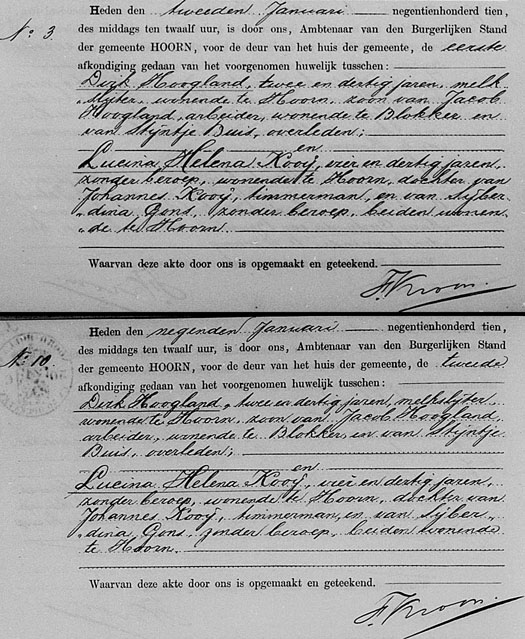 Heden den tweeden Januari negentienhonderd tien,
Nº 3.
des middags ten twaalf uur, is door ons, Ambtenaar van den Burgerlijken Stand
der gemeente HOORN, voor de deur van het huis der gemeente, de eerste
afkondiging gedaan van het voorgenomen huwelijk tusschen:
Dirk Hoogland, twee en dertig jaren, melk-
„slijter, wonende te Hoorn, zoon van Jacob
Hoogland, arbeider, wonende te Blokker en
van Stijntje Buis, overleden;
en
Lucina Helena Kooij, vier en dertig jaren,
zonder beroep, wonende te Hoorn, dochter van
Johannes Kooij, timmerman, en van Sijber-
„dina Gons, zonder beroep, beiden wonen-
„de te Hoorn.
Waarvan deze akte door ons is opgemaakt en geteekend.
F. Kroon
Heden den negenden Januari negentienhonderd tien,
des middags ten twaalf uur, is door ons, Ambtenaar van den Burgerlijken Stand
Nº 10.
der gemeente HOORN, voor de deur van het huis der gemeente, de tweede
afkondiging gedaan van het voorgenomen huwelijk tusschen:
Dirk Hoogland, twee en dertig jaren, melkslijter,
wonende te Hoorn, zoon van Jacob Hoogland,
arbeider, wonende te Blokker, en van Stijntje
Buis, overleden;
en
Lucina Helena Kooij, vier en dertig jaren,
zonder beroep, wonende te Hoorn, dochter van
Johannes Kooij, timmerman, en van Sijber-
„dina Gons, zonder beroep, beiden wonende
te Hoorn.
Waarvan deze akte door ons is opgemaakt en geteekend.
F. Kroon